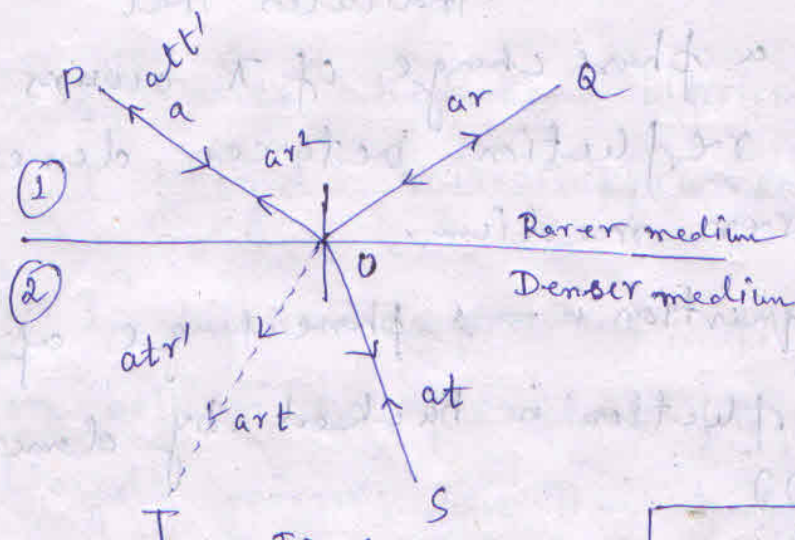 att'
P
a
ar²
ar
Q
①
O
Rarer medium
②
Denser medium
atr'
art
at
S